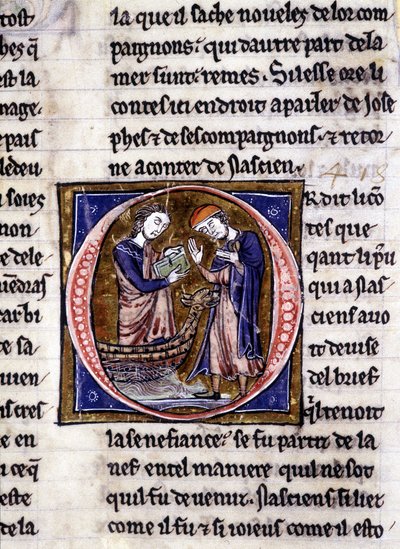 tost
bes q̃
est la
nage.
pais
ledeu
soies
non
e dele
uẽdras
carbi
te sa
uien
s cres
e en
ce q̃
este
de la
la que il sache noueles de lor com
paignons. qui dautre part de la
mer sunt remes. Si lesse ore li
contes ici endroit a parler de Jose
phes ⁊ de ses compaignons. ⁊ retor
ne a conter de Nascien.
OR dit li cõ
tes que
qant li
qui a Nas
ciens auo
it deuise
del brief
q̃l tenoit
la senefiance. se fu partir de la
nef en tel maniere quil ne sot
quil fu deuenu. Nasciens si lier
come il fu ⁊ si ioieus come il esto